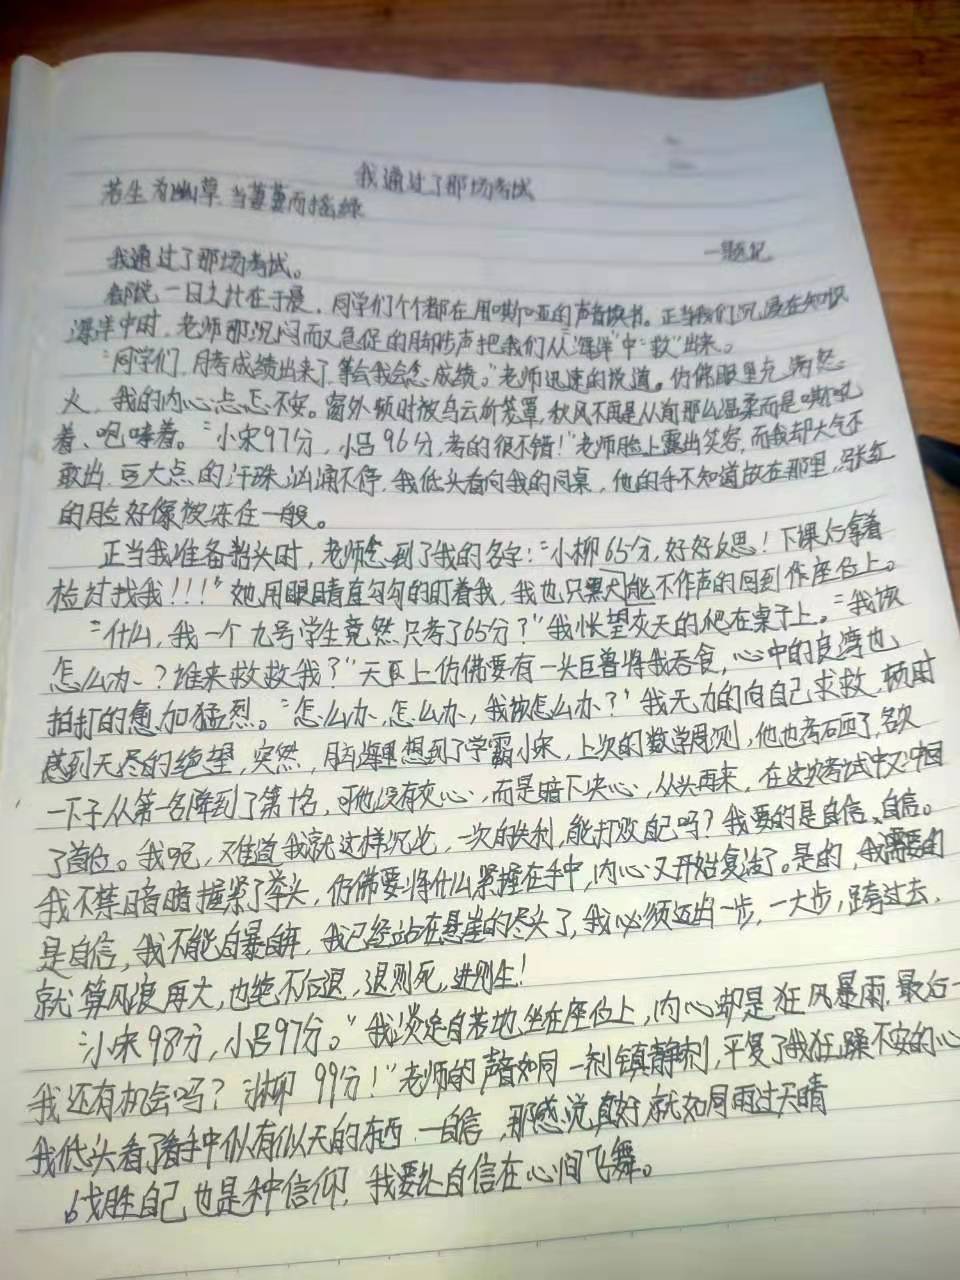 我通过了那场考试
若生为幽草 当萋萋而摇绿
—题记
我通过了那场考试。
都说一日之计在于晨，同学们个个都在用嘶哑的声音读书。正当我们沉浸在知识
海洋中时，老师那沉闷而又急促的脚步声把我们从"海洋"中"救"出来。
"同学们，月考成绩出来了，等会我会念成绩。"老师迅速的说道。仿佛眼里充满怒
火，我的内心忐忑不安。窗外顿时被乌云所笼罩，秋风不再是从前那么温柔而是嘶吼
着、咆哮着。"小宋97分，小吕96分，考的很不错！"老师脸上露出笑容，而我却大气不
敢出，豆大点的汗珠汹涌不停，我低头看向我的同桌，他的手不知道放在那里，张红
的脸好像被冻住一般。
正当我准备抬头时，老师念到了我的名字："小柳65分，好好反思！下课后拿着
检讨找我！！！"她用眼睛直勾勾的盯着我，我也只能不作声的回到座位上。
"什么，我一个九号学生竟然只考了65分？"我怅望灰天的爬在桌子上。"我该
怎么办？谁来救救我？"天夏上仿佛要有一头巨兽将我吞食，心中的良湾也
拍打的愈加猛烈。"怎么办，怎么办，我该怎么办？"我无力的向自己求救，顿时
感到无尽的绝望，突然，脑海里想到了学霸小宋，上次的数学周测，他也考砸了，名次
一下子从第一名降到了第十名，可他没有灰心，而是暗下决心，从头再来，在这次考试中又冲回
了首位。我呢，难道我就这样沉沦，一次的失利，能打败自己吗？我要的是自信、自信。
我不禁暗暗握紧了拳头，仿佛要将什么紧握在手中，内心又开始复活了。是的，我需要的
是自信，我不能自暴自弃，我已经站在悬崖的尽头了，我必须迈出一步，一大步，跨过去，
就算风浪再大，也绝不后退，退则死，进则生！
"小宋98分，小吕97分。"我淡定自若地坐在座位上，内心却是狂风暴雨，最后一
我还有机会吗？"小柳 99分！"老师的声音如同一剂镇静剂，平复了我狂躁不安的心
我低头看了看手中似有似无的东西—自信，那感觉真好，就如同雨过天晴
战胜自己，也是种信仰，我要让自信在心间飞舞。